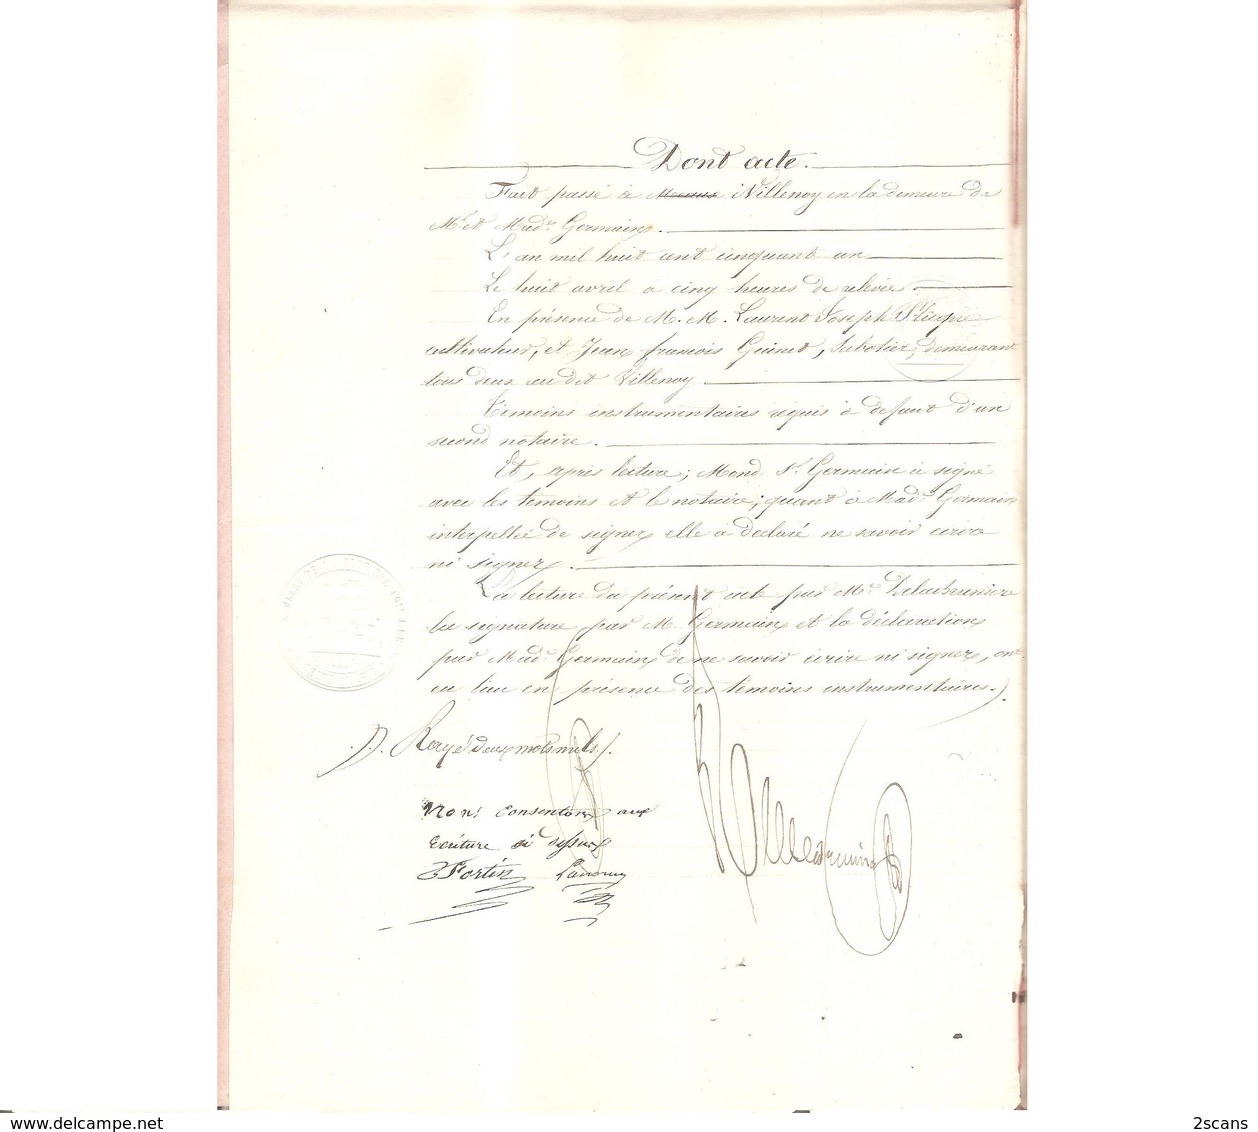 Dont acte.
Fait passé à Meaux Villenoy en la demeure de
Mr et Made Germain.
L'an mil huit cent cinquant un
Le huit avril à cinq heures de relévée.
En présence de M. M. Laurent Joseph
cultivateur, et Jean françois Guinet, Sabotier, demeurant
tous deux au dit Villenoy
Témoins instrumentaires requis à defaut d'un
second notaire.
Et, après lecture; Mond. Sr Germain à signé
avec les temoins et le notaire; quant à Made Germain
interpellée de signer elle à declaré ne savoir écrire
ni signer.
La lecture du présent acte par Me
la signature par M. Germain et la déclaration
par Made Germain de ne savoir écrire ni signer, ont
eu lieu en présence des témoins instrumentaires.
Rayé deux mots nuls
Nons consentons aux
ecriture si dessus
Fortin
delcampe.net
2scans